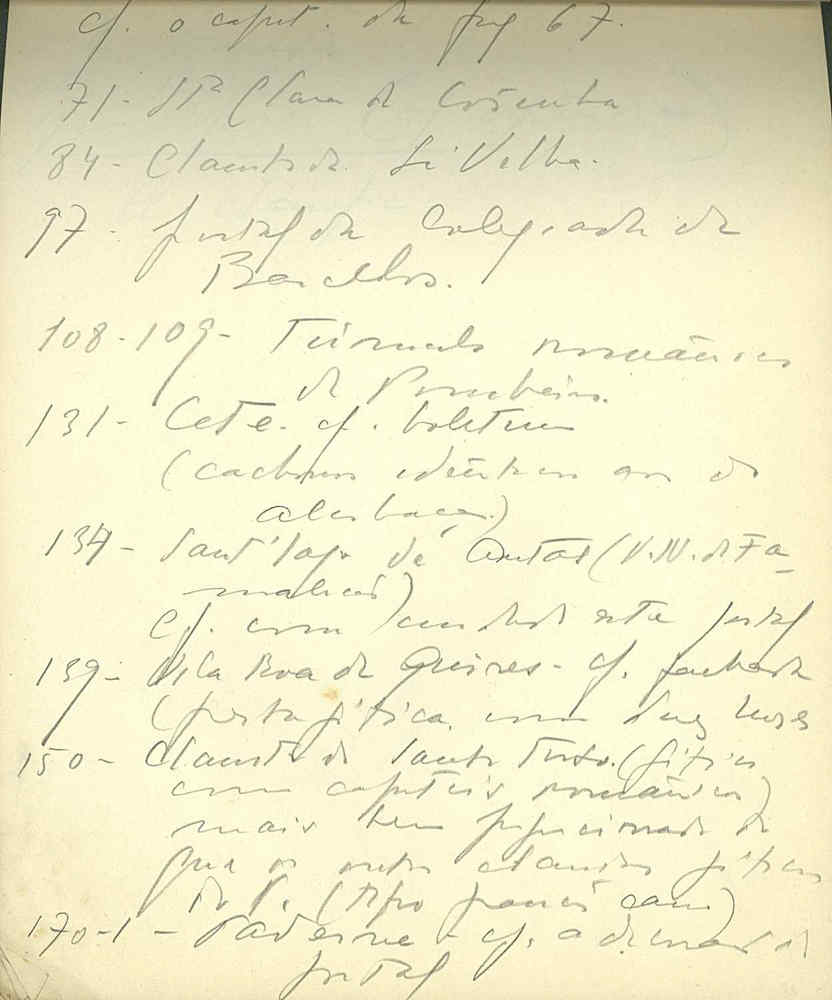 cf. o capit. da pag 67.
71 - Stª Clara de Coimbra
84 - Claustro da Sé Velha.
97 - portal da Colegiada de
Barcelos.
108-109 - Túmulo românico
de Pombeiro.
131 - Cete. cf. boletim
(cachorros idênticos aos de
Alcobaça.)
134 - Sant'Iago de Antas (V.N. de Fa-
malicão)
cf. com cuidado este portal
139 - Vila Boa de Quires - cf. fachada
(porta gótica com
150 - Claustro de Santo Tirso. (gótico
com capitéis românicos)
mais bem proporcionado do
que os outros claustros góticos
do P. (tipo
170-1 - Paderne - cf. a de
portal